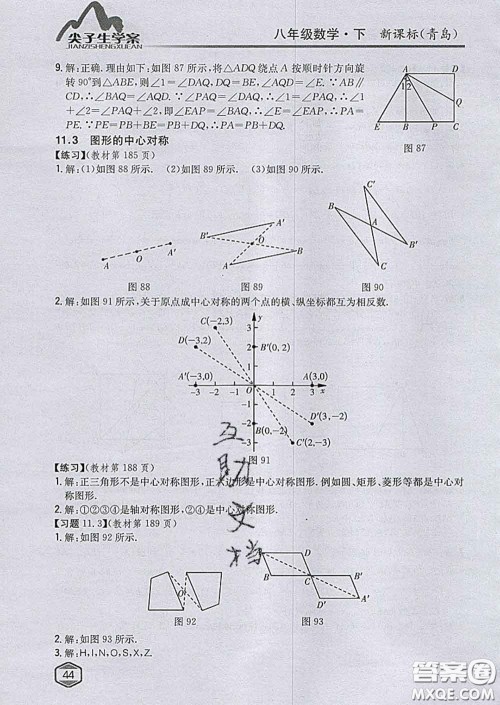 尖子生学案
JIANZISHENGXUEAN
八年级数学·下 新课标(青岛)
9. 解:正确. 理由如下:如图 87 所示,将△ADQ 绕点 A 按顺时针方向旋
转 90°到△ABE,则∠1=∠DAQ,DQ=BE,∠AQD=∠E. ∵AB∥
CD,∴∠BAQ=∠AQD. ∵∠PAQ=∠DAQ,∴∠PAQ=∠1,∴∠1
+∠2=∠PAQ+∠2=∠AQD,即∠EAP=∠BAQ,∴∠E=∠EAP,
∴EP=PA. ∵EP=PB+BE=PB+DQ,∴PA=PB+DQ.
A
D
1
2
Q
E
B
P
C
图 87
11.3 图形的中心对称
【练习】(教材第 185 页)
1. 解:(1)如图 88 所示. (2)如图 89 所示. (3)如图 90 所示.
A
O
A′
图 88
A′
B′
O
B
A
图 89
C′
B
A
B′
C
图 90
2. 解:如图 91 所示,关于原点成中心对称的两个点的横、纵坐标都互为相反数.
y
C(−2,3)
3
D(−3,2)
2
B′(0,2)
1
A′(−3,0)
A(3,0)
−3 −2 −1 O 1 2 3 x
−1
D′(3,−2)
−2
B(0,−2)
−3
C′(2,−3)
图 91
【练习】(教材第 188 页)
1. 解:正三角形不是中心对称图形,正六边形是中心对称图形. 例如圆、矩形、菱形等都是中心对
称图形.
2. 解:①②③④是轴对称图形,②④是中心对称图形.
【习题 11.3】(教材第 189 页)
1. 解:如图 92 所示.
O
图 92
D
B
C
B′
D′
A′
图 93
2. 解:如图 93 所示.
3. 解:H,I,N,O,S,X,Z.
44
互
助
文
档
答案圈
MXQE.COM